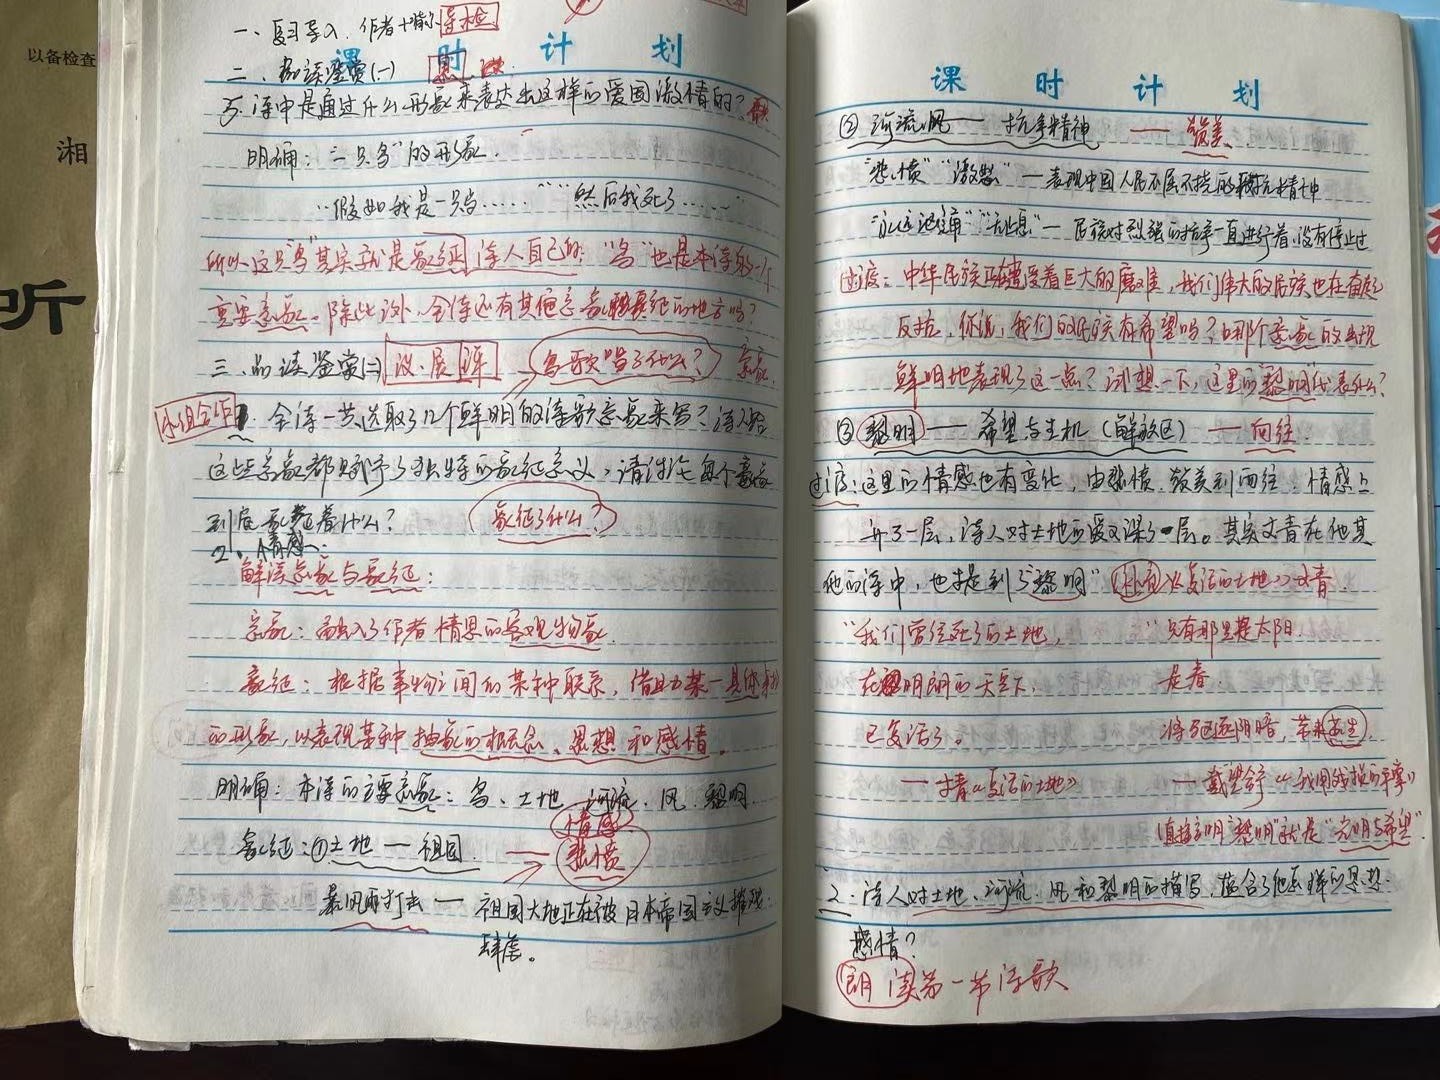 以备检查
湘
听
一、复习导入 作者+背景 导检
课 时 计 划
二、初读鉴赏(一)
5. 诗中是通过什么形象来表达出这样的爱国激情的?
明确:"一只鸟"的形象.
"假如我是一只鸟……" "然后我死了……"
所以这只"鸟"其实就是象征诗人自己的."鸟"也是本诗的一个
重要意象.除此以外,全诗还有其他意象象征的地方吗?
三、品读鉴赏(二) 议 展 评 鸟歌唱了什么? 意象
小组合作 1. 全诗一共选取了几个鲜明的诗歌意象来写?诗人给
这些意象都赋予了独特的象征意义,请讨论每个意象
到底象征着什么? 象征了什么?
2、情感
解读意象与象征:
意象:融入了作者情思的客观物象.
象征:根据事物之间的某种联系,借助某一具体事物
的形象,以表现某种抽象的概念、思想和感情.
明确:本诗的主要意象:鸟、土地、河流、风、黎明.
情感
象征:①土地 — 祖国 — 悲愤
暴风雨打击 — 祖国大地正在被日本帝国主义摧残.
肆虐。
课 时 计 划
② 河流、风 — 抗争精神 — 赞美
"悲愤""激怒"—表现中国人民不屈不挠的抗精神
"永远汹涌""无止息"—民族对列强的抗争一直进行着,没有停止过
过渡:中华民族正在遭受着巨大的磨难,我们伟大的民族也在奋起
反抗,你说,我们的民族有希望吗?哪个意象的出现
鲜明地表现了这一点?试想一下,这里的黎明代表什么?
③ 黎明 — 希望与生机(解放区) — 向往.
过渡:这里的情感也有变化,由悲愤、赞美到向往,情感上
升了一层,诗人对土地的爱又深了一层。其实艾青在他其
他的诗中,也提到了"黎明" 补充《复活的土地》艾青.
"我们曾经死了的土地, "只有那里是太阳,
在明朗的天空下, 是春
已复活了。 将驱逐阴暗,带来苏生
—艾青《复活的土地》 —戴望舒《我用残损的手掌》
(直接言明"黎明"就是"光明与希望".
2. 诗人对土地、河流、风和黎明的描写,蕴含了他怎样的思想
感情?
朗读第一节诗歌